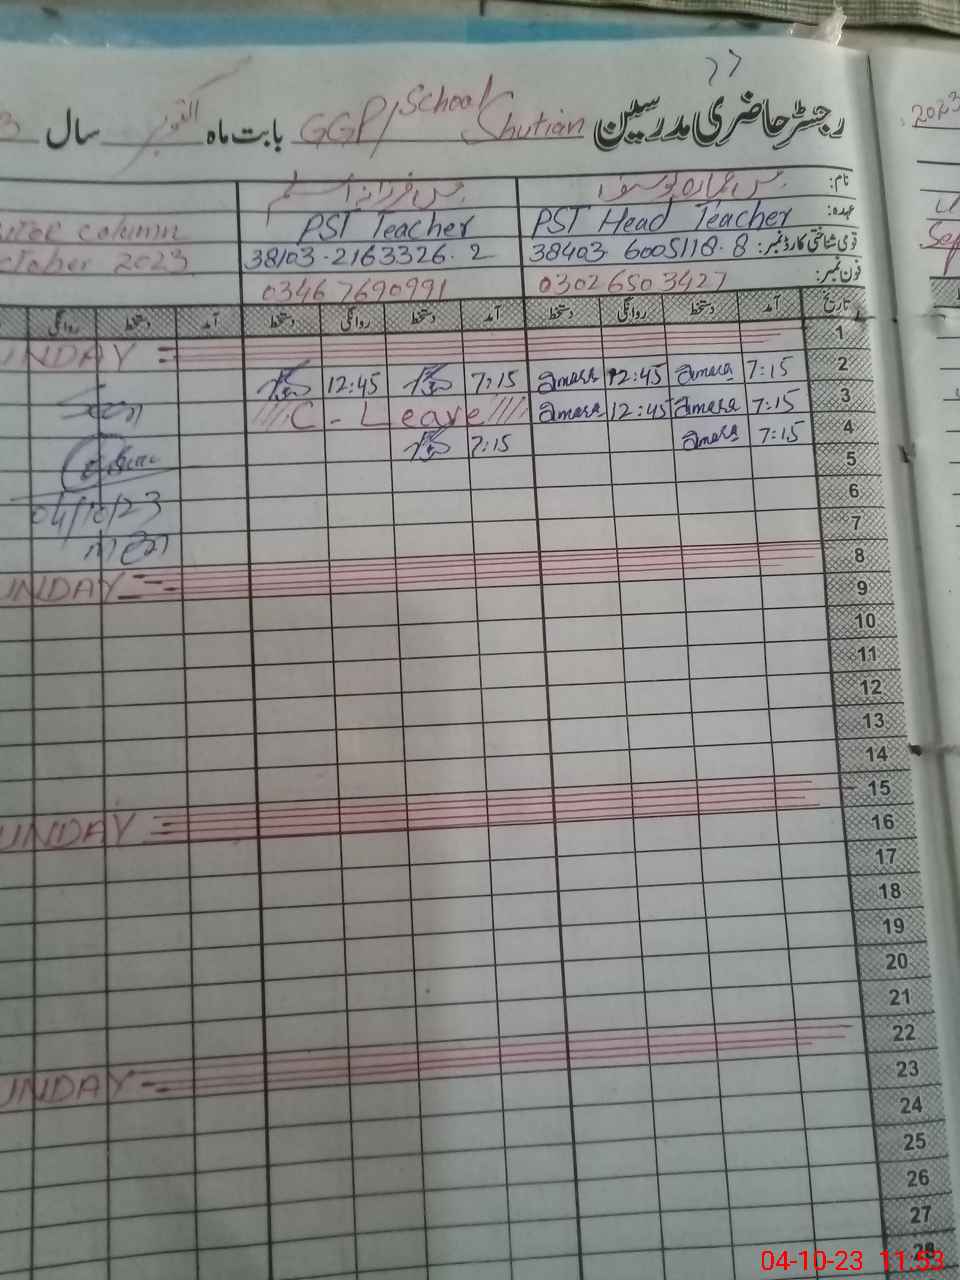 رجسٹر حاضری مدرسین GGP/School Shutian بابت ماہ اکتوبر سال
2023
نام:
عہدہ: PST Head Teacher PST Teacher column
قومی شناختی کارڈ نمبر: 38403-6005118-8 38103-2163326-2 2023
فون نمبر: 03026503427 03467690991
تاریخ آمد دستخط روانگی دستخط آمد دستخط روانگی دستخط آمد دستخط روانگی
1 UNDAY
2 7:15 amara 12:45 amara 7:15 12:45
3 7:15 amara 12:45 amara C-Leave
4 7:15 amara 7:15
5
6 04/10/23
7
8 UNDAY
9
10
11
12
13
14
15 UNDAY
16
17
18
19
20
21
22 UNDAY
23
24
25
26
27
28
04-10-23 11:53